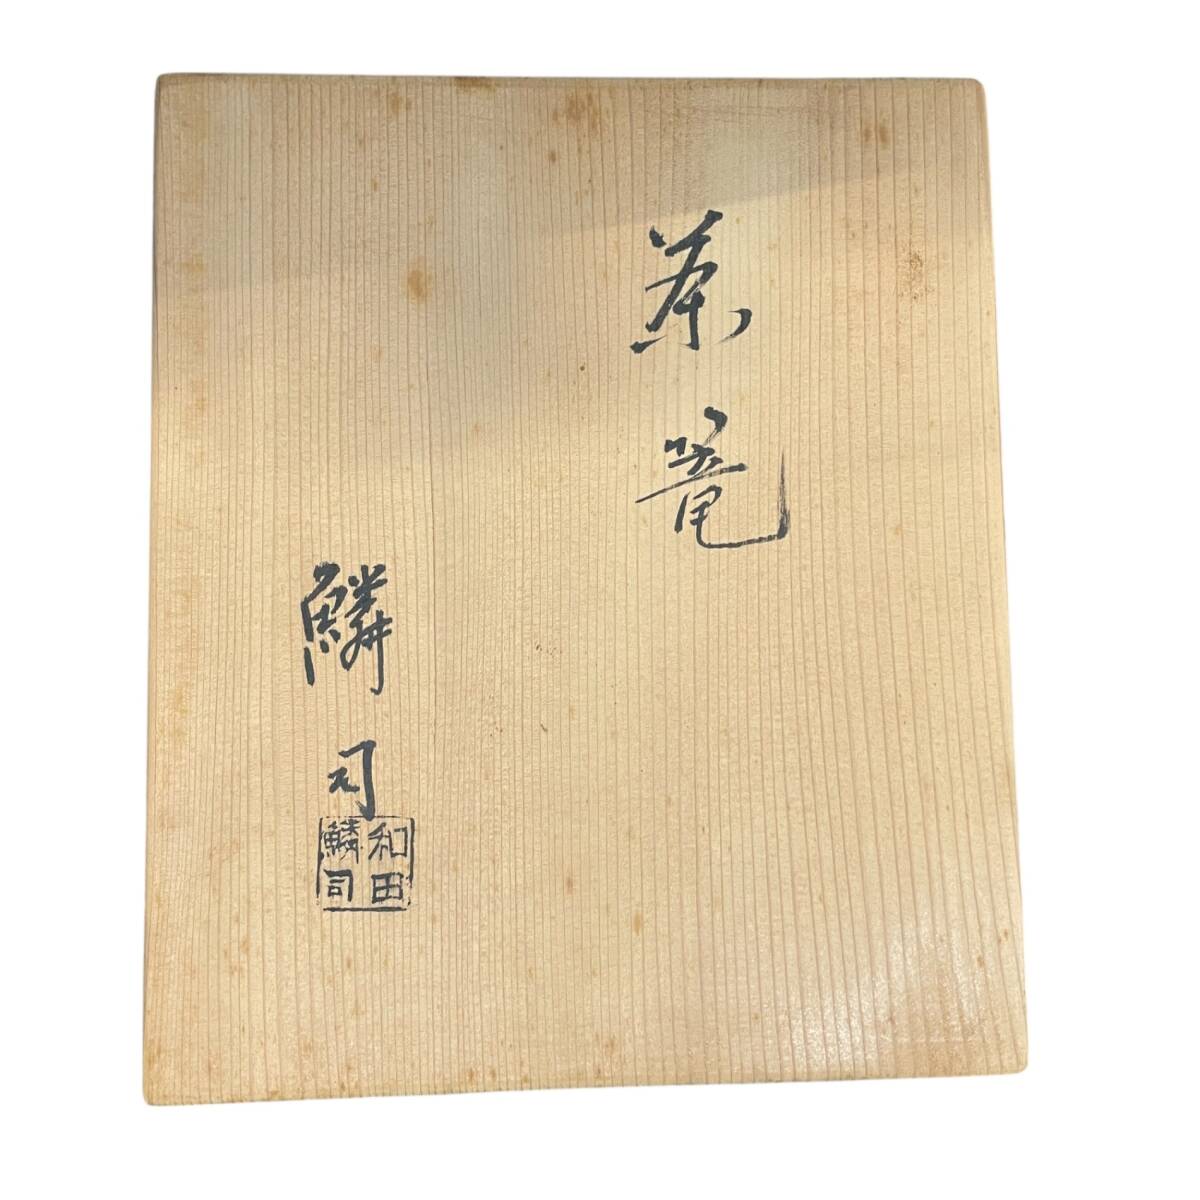 茶篭
鱗司
和田
鱗司